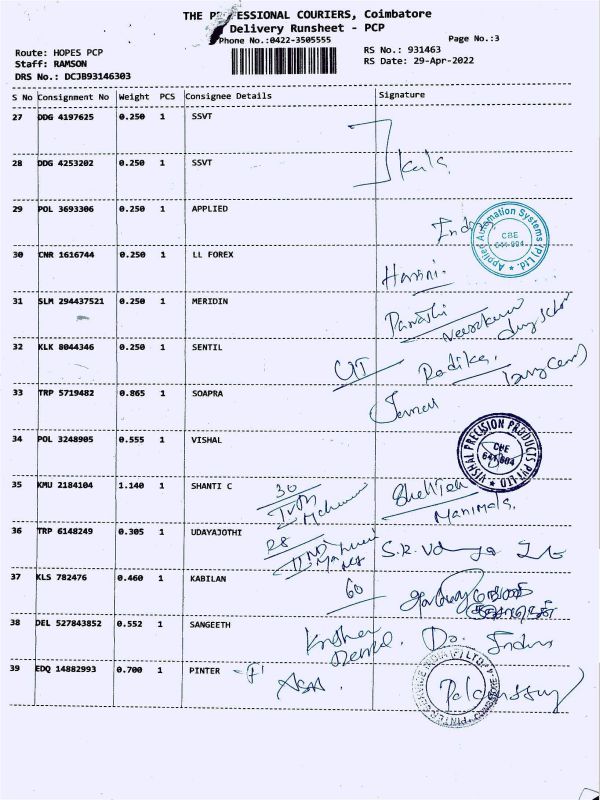 THE PROFESSIONAL COURIERS, Coimbatore
Delivery Runsheet - PCP
Phone No.:0422-3505555
Page No.:3
Route: HOPES PCP
RS No.: 931463
Staff: RAMSON
RS Date: 29-Apr-2022
DRS No.: DCJB93146303
S No Consignment No Weight PCS Consignee Details Signature
27 DDG 4197625 0.250 1 SSVT
28 DDG 4253202 0.250 1 SSVT
Kala
29 POL 3693306 0.250 1 APPLIED
Applied Automation Systems (P) Ltd.
CBE
641 004
30 CNR 1616744 0.250 1 LL FOREX
Harini.
31 SLM 294437521 0.250 1 MERIDIN
32 KLK 8044346 0.250 1 SENTIL
Radika
33 TRP 5719482 0.865 1 SOAPRA
34 POL 3248905 0.555 1 VISHAL
VISHAL PRECISION PRODUCTS (P) LTD
CBE
641 004
35 KMU 2184104 1.140 1 SHANTI C
30
Manimala.
36 TRP 6148249 0.305 1 UDAYAJOTHI
28
37 KLS 782476 0.460 1 KABILAN
60
38 DEL 527843852 0.552 1 SANGEETH
39 EDQ 14882993 0.700 1 PINTER